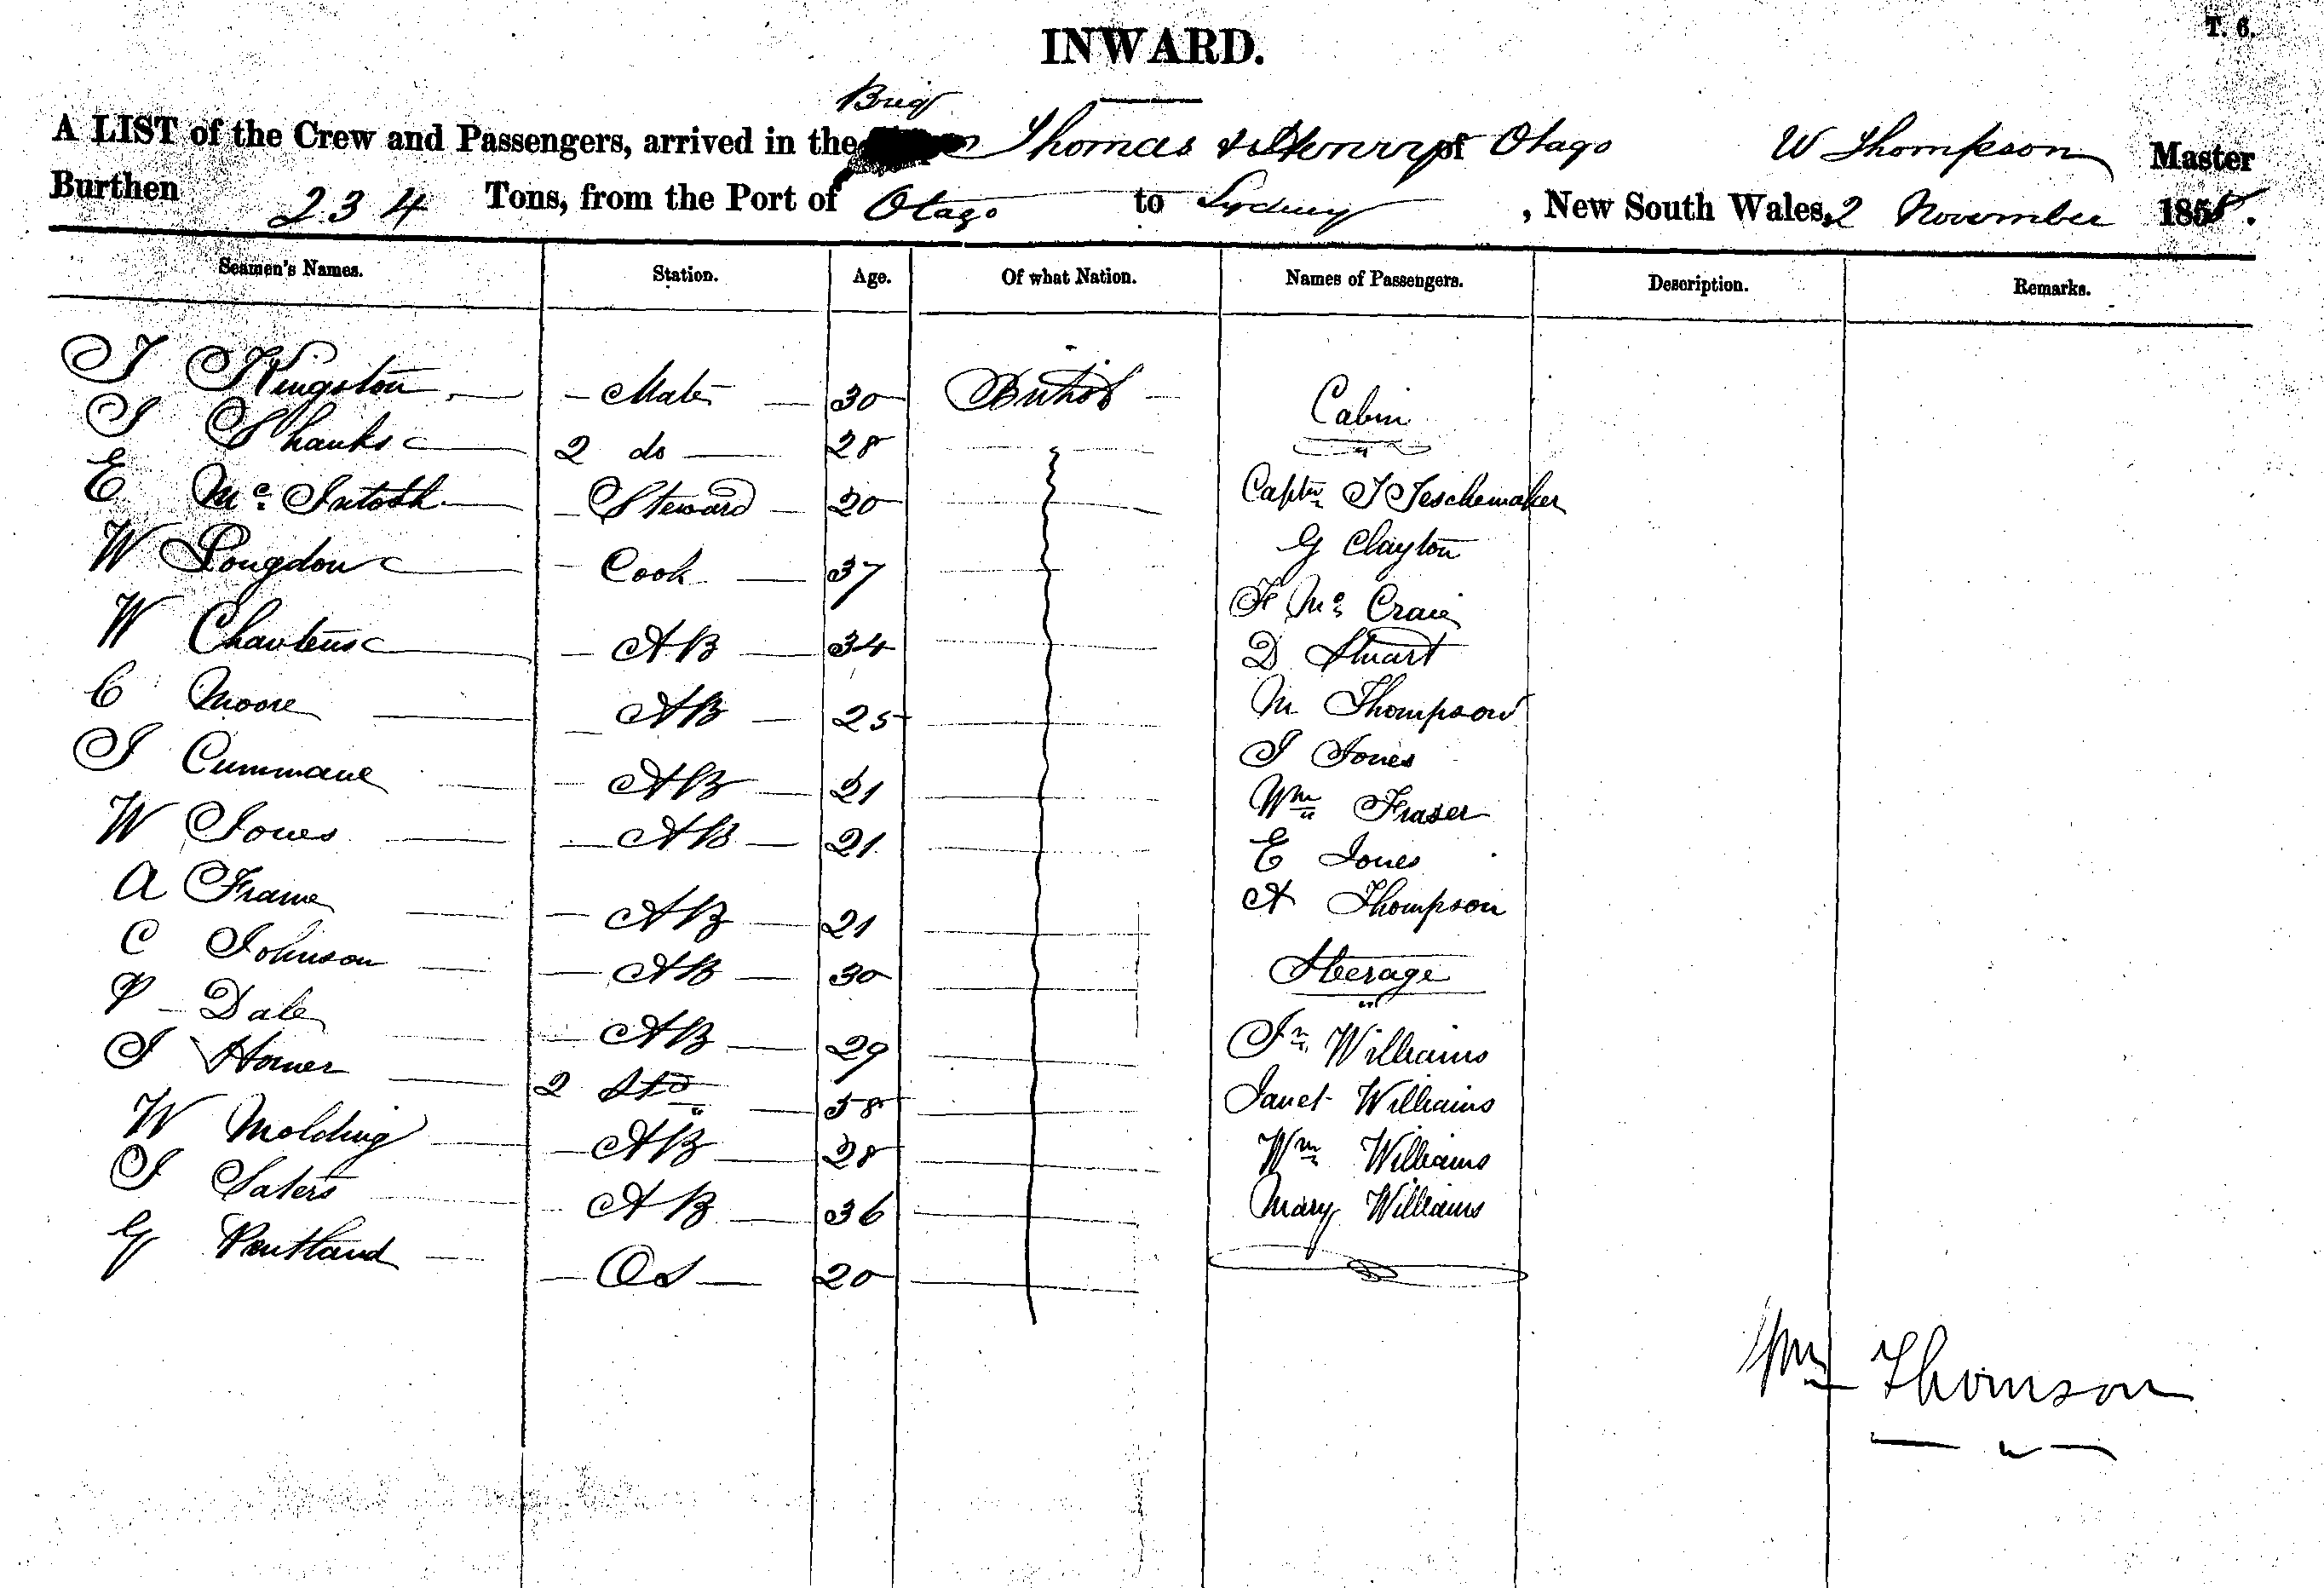 T. 6.
INWARD.
Brig
A LIST of the Crew and Passengers, arrived in the Thomas & Henry of Otago W Thompson Master
Burthen 234 Tons, from the Port of Otago to Sydney, New South Wales, 2 November 1858.
Seamen's Names. Station. Age. Of what Nation. Names of Passengers. Description. Remarks.
J Kingston Mate 30 British Cabin
J Shanks 2 do 28
E McIntosh Steward 20 Captn J Teschemaker
W Longdon Cook 37 G Clayton
F Mc Craie
W AB 34 D Stuart
C Moore AB 25 M Thompson
J Cummane AB 21 J Jones
Wm Fraser
W Jones AB 21 E Jones
A Frame AB 21 A Thompson
C Johnson AB 30 Steerage
P Dale AB 29 Jn Williams
J Homer 2 Std 58 Janet Williams
W Molding AB 28 Wm Williams
J Saters AB 36 Mary Williams
G Pentland Os 20
Wm Thomson